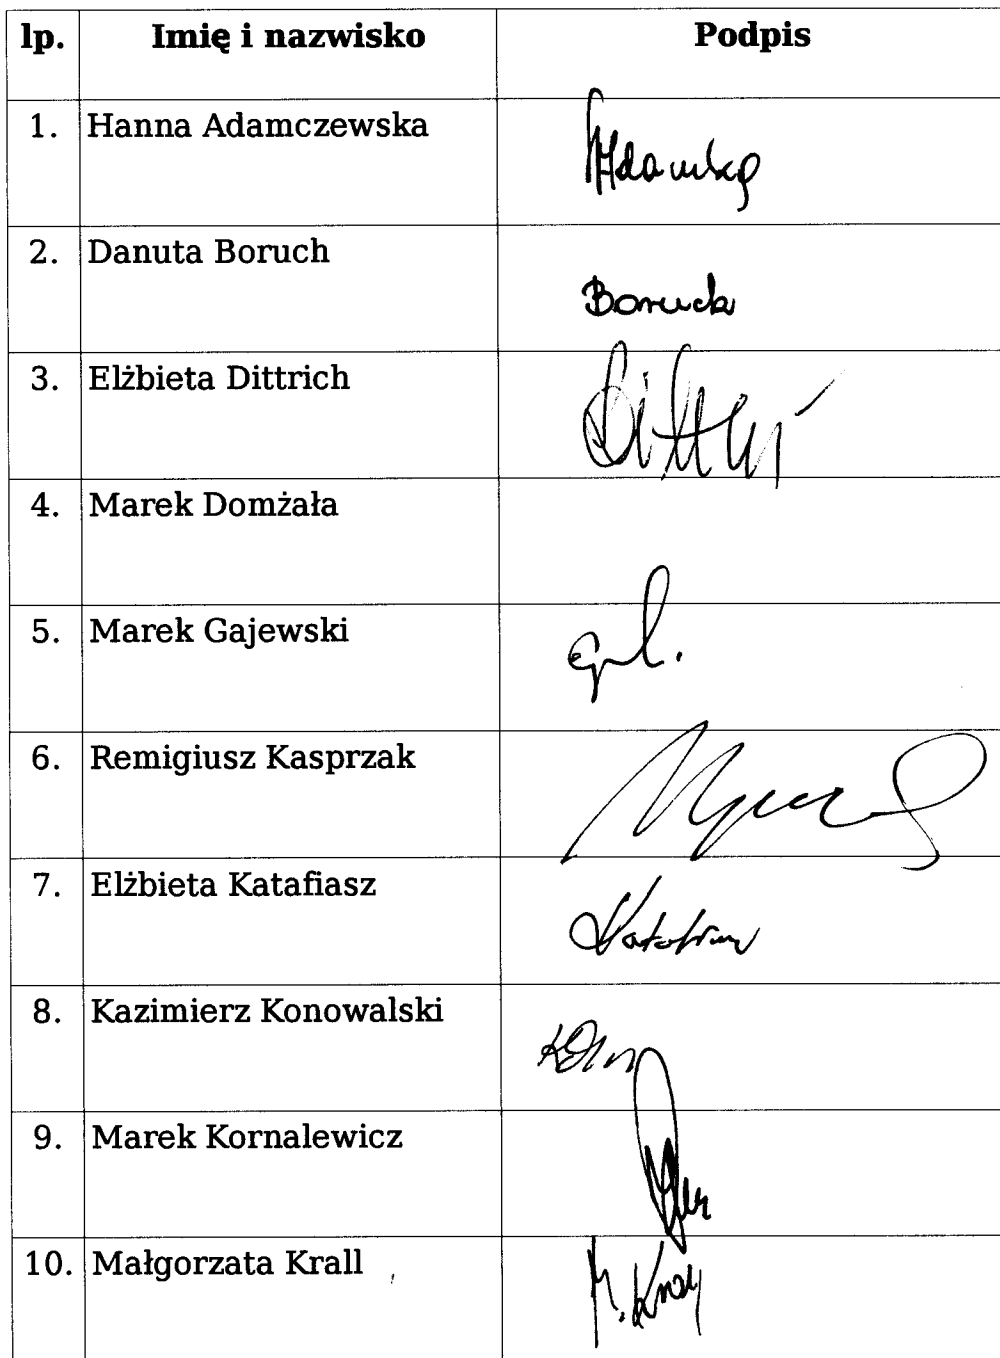 lp. Imię i nazwisko Podpis
1. Hanna Adamczewska
2. Danuta Boruch
Boruch
3. Elżbieta Dittrich
4. Marek Domżała
5. Marek Gajewski
6. Remigiusz Kasprzak
7. Elżbieta Katafiasz
8. Kazimierz Konowalski
9. Marek Kornalewicz
10. Małgorzata Krall
M. Krall